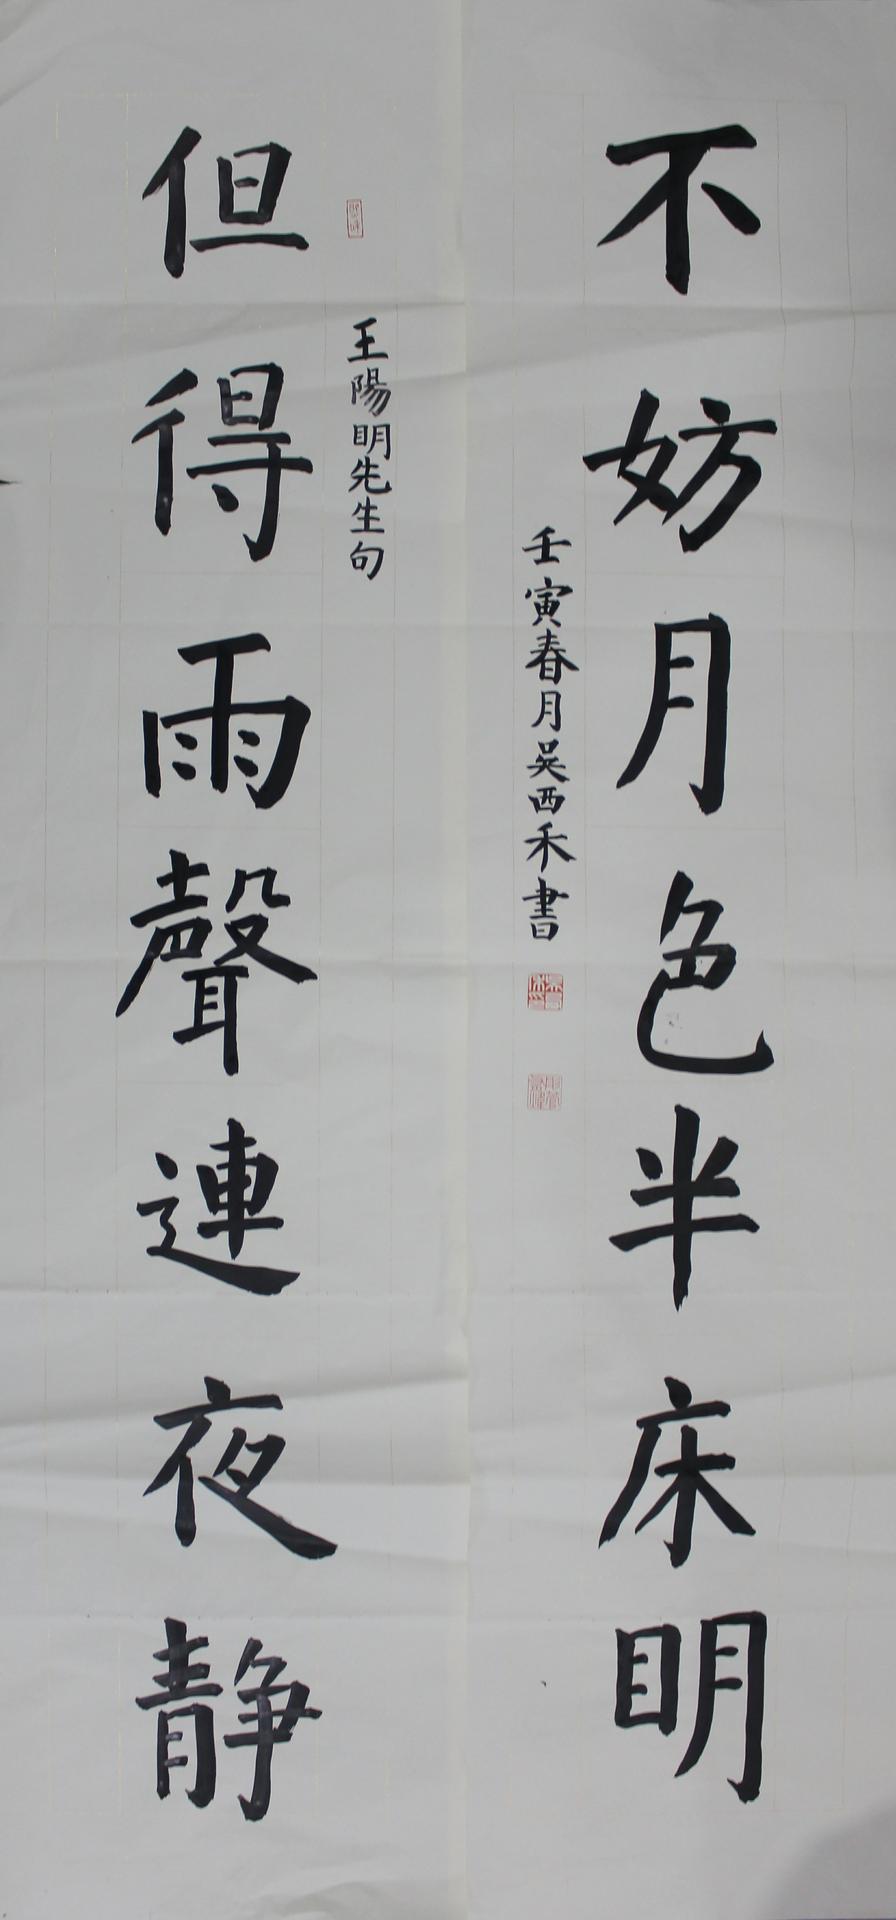 但得雨聲連夜静
王陽明先生句
不妨月色半床明
壬寅春月吴西禾書